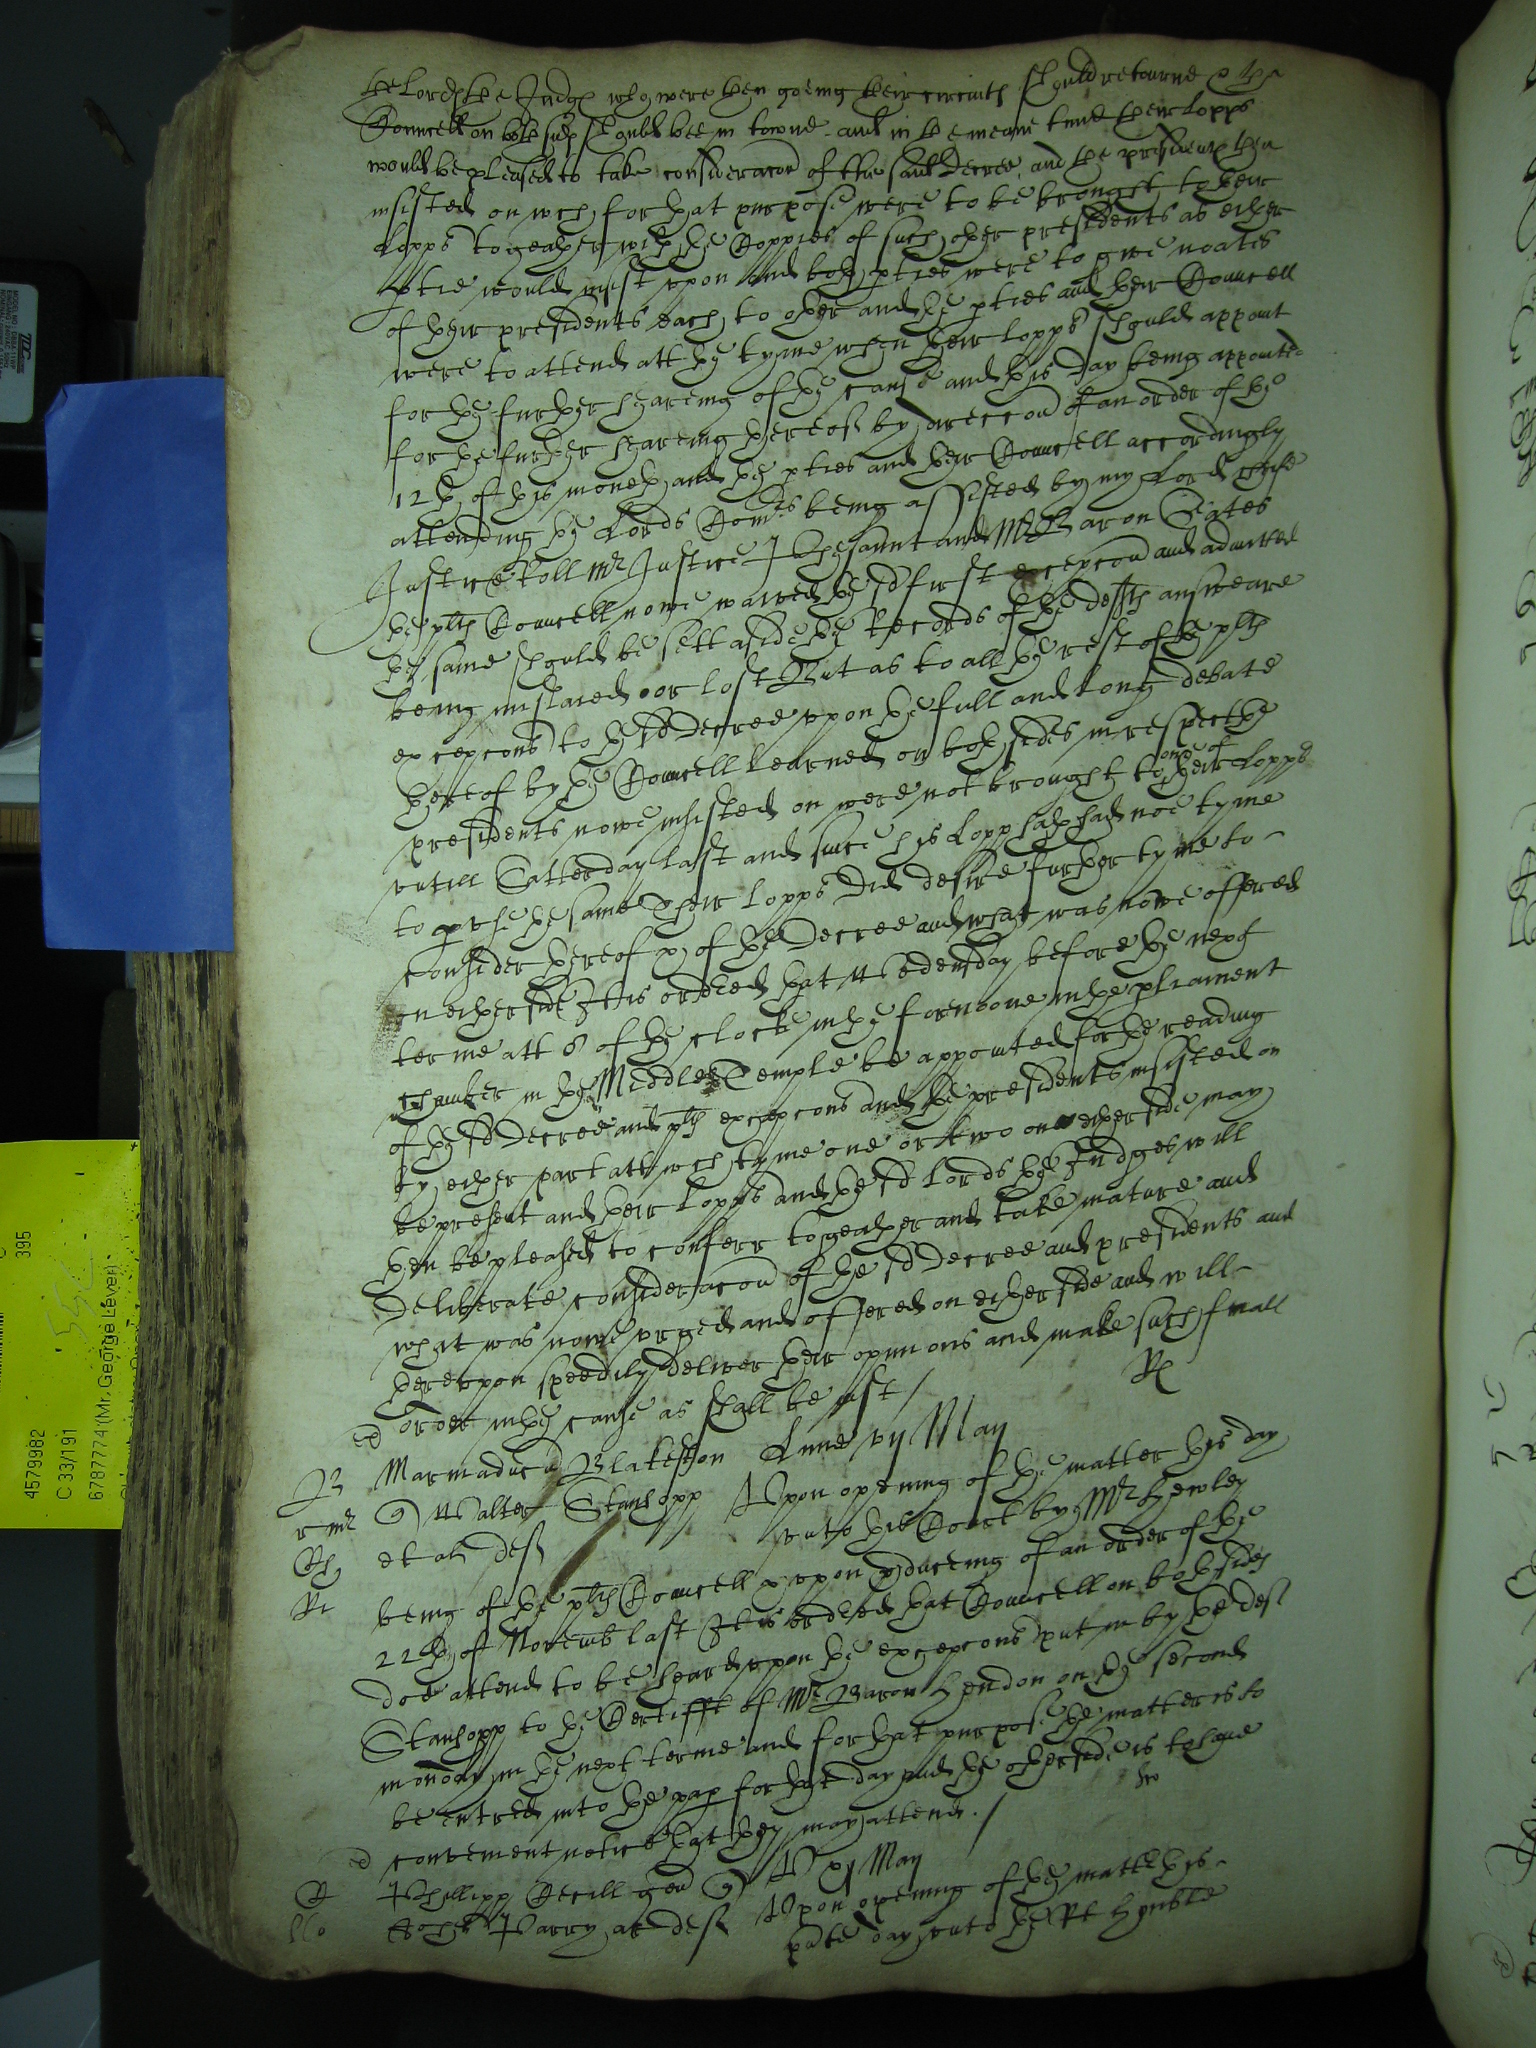 the Lords the Judges who were then goeing their circuits should retourne & the
Councell on both sides should bee in towne and in the meane time their Lopps
would be pleased to take consideracon of the said Decree and the presidents then
insisted on wch for that purpose were to be brought to their
Lopps togeather with the Coppies of such other presidents as either
ptie would insist vpon and both pties were to give noates
of their presidents each to other and the pties and their Councell
were to attend att the tyme when their Lopps should appoint
for the further heareing of the cause and this day being appointed
for the further heareing thereof by direccon of an order of the
12th of this moneth and the pties and their Councell accordingly
attending the Lords Comrs being assisted by my Lord cheife
Justice Roll Mr Justice Phesaunt and Mr Baron Gates
the plts Councell nowe waived the sd first excepcon and admitted
the same should be sett aside the Records of the defts answeare
being mislaied or lost But as to all the rest of the plts
excepcons to the sd Decree vpon the full and long debate
thereof by the Councell learned on both sides in respect the
presidents nowe insisted on were not brought to one of their Lopps
vntill Satterday last and since his Lopp hath had noe tyme
to pvse the same Their Lopps did desire further tyme to
consider thereof & of the Decree and what was nowe offered
on either side It is ordered that Wedensday before the next
terme att 8 of the clocke in the forenoone in the pliament
chamber in the Middle Temple be appointed for the reading
of the sd Decree and plts excepcons and the presidents insisted on
by either part att wch tyme one or two on either side may
be present and their Lopps and the sd Lords the Judges will
then be pleased to conferr togeather and take mature and
deliberate consideracon of the sd Decree and presidents and
what was nowe vrged and offered on either side and will
therevpon speedily deliver their opinions and make such finall
order in the cause as shall be just /
Marmaduce Blakeston Lune vij May
Walter Stanhopp Vpon opening of the matter this day
et al deft vnto this Court by Mr Hewley
being of the plts Councell & vpon pduceing of an order of the
22th of Novemb last It is ordered that Councell on both sides
doe attend to be heard vpon the excepcons put in by the deft
Stanhopp to the Certifft of Mr Baron Hendon on the second
monday in the next terme and for that purpose the matter is to
be entred into the pap for that day and the other side is to have
convenient notice that they may attend ./
Phillipp Cecill gen V xj May
Parry ar deft Vpon opening of the mattr this
pnte day vnto the Rt honble
4579982
C 33/191
6787774 (Mr. George Leven)
395